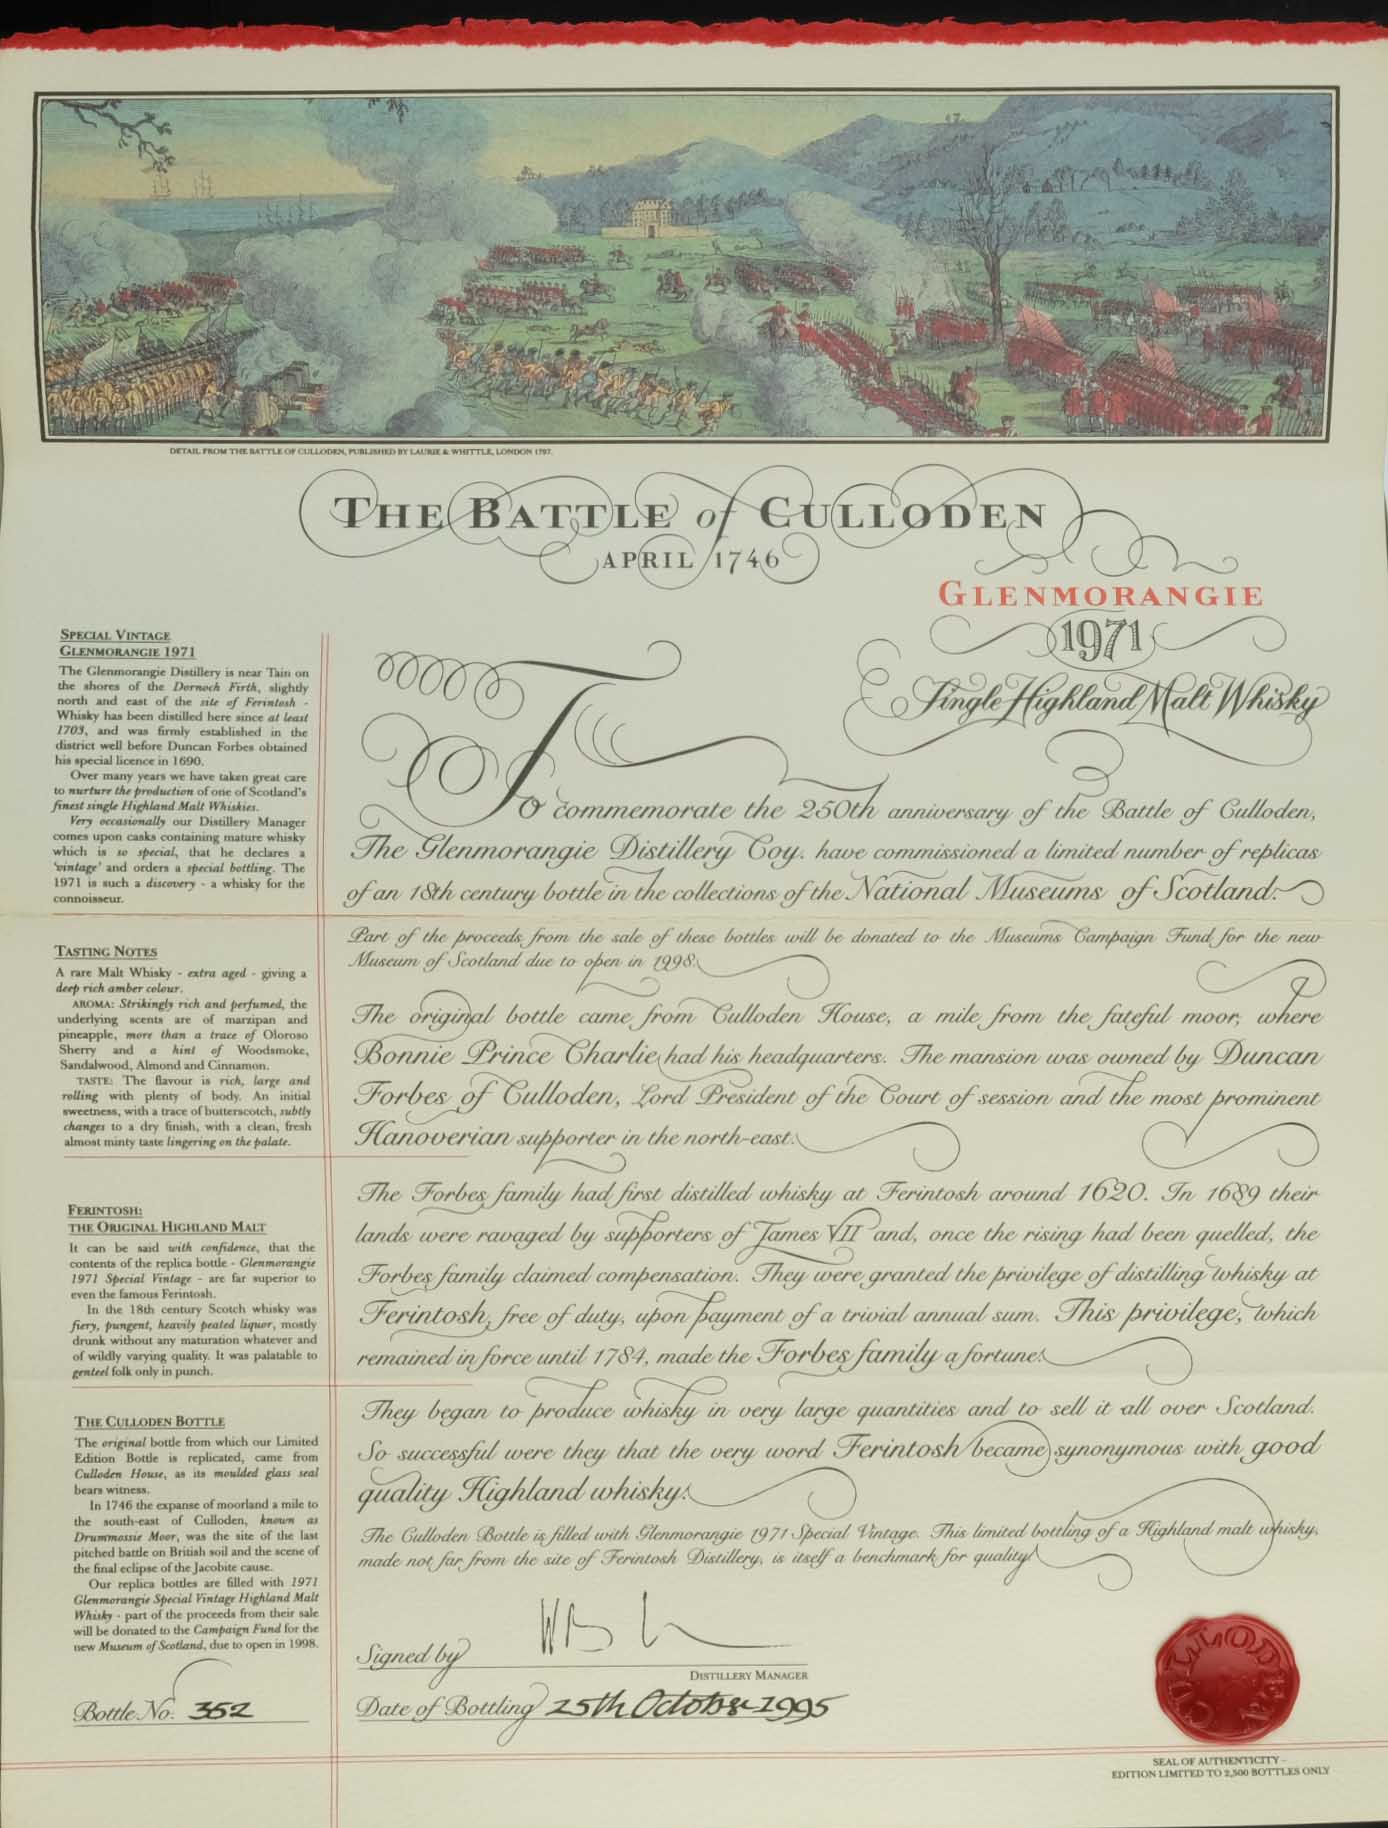 DETAIL FROM THE BATTLE OF CULLODEN, PUBLISHED BY LAURIE & WHITTLE, LONDON 1797.
THE BATTLE of CULLODEN
APRIL 1746
GLENMORANGIE
1971
Single Highland Malt Whisky
SPECIAL VINTAGE
GLENMORANGIE 1971
The Glenmorangie Distillery is near Tain on
the shores of the Dornoch Firth, slightly
north and east of the site of Ferintosh -
Whisky has been distilled here since at least
1703, and was firmly established in the
district well before Duncan Forbes obtained
his special licence in 1690.
Over many years we have taken great care
to nurture the production of one of Scotland's
finest single Highland Malt Whiskies.
Very occasionally our Distillery Manager
comes upon casks containing mature whisky
which is so special, that he declares a
'vintage' and orders a special bottling. The
1971 is such a discovery - a whisky for the
connoisseur.
TASTING NOTES
A rare Malt Whisky - extra aged - giving a
deep rich amber colour.
AROMA: Strikingly rich and perfumed, the
underlying scents are of marzipan and
pineapple, more than a trace of Oloroso
Sherry and a hint of Woodsmoke,
Sandalwood, Almond and Cinnamon.
TASTE: The flavour is rich, large and
rolling with plenty of body. An initial
sweetness, with a trace of butterscotch, subtly
changes to a dry finish, with a clean, fresh
almost minty taste lingering on the palate.
FERINTOSH:
THE ORIGINAL HIGHLAND MALT
It can be said with confidence, that the
contents of the replica bottle - Glenmorangie
1971 Special Vintage - are far superior to
even the famous Ferintosh.
In the 18th century Scotch whisky was
fiery, pungent, heavily peated liquor, mostly
drunk without any maturation whatever and
of wildly varying quality. It was palatable to
genteel folk only in punch.
THE CULLODEN BOTTLE
The original bottle from which our Limited
Edition Bottle is replicated, came from
Culloden House, as its moulded glass seal
bears witness.
In 1746 the expanse of moorland a mile to
the south-east of Culloden, known as
Drummossie Moor, was the site of the last
pitched battle on British soil and the scene of
the final eclipse of the Jacobite cause.
Our replica bottles are filled with 1971
Glenmorangie Special Vintage Highland Malt
Whisky - part of the proceeds from their sale
will be donated to the Campaign Fund for the
new Museum of Scotland, due to open in 1998.
Bottle No. 352
To commemorate the 250th anniversary of the Battle of Culloden,
The Glenmorangie Distillery Coy. have commissioned a limited number of replicas
of an 18th century bottle in the collections of the National Museums of Scotland.
Part of the proceeds from the sale of these bottles will be donated to the Museums Campaign Fund for the new
Museum of Scotland due to open in 1998.
The original bottle came from Culloden House, a mile from the fateful moor, where
Bonnie Prince Charlie had his headquarters. The mansion was owned by Duncan
Forbes of Culloden, Lord President of the Court of session and the most prominent
Hanoverian supporter in the north-east.
The Forbes family had first distilled whisky at Ferintosh around 1620. In 1689 their
lands were ravaged by supporters of James VII and, once the rising had been quelled, the
Forbes family claimed compensation. They were granted the privilege of distilling whisky at
Ferintosh, free of duty, upon payment of a trivial annual sum. This privilege, which
remained in force until 1784, made the Forbes family a fortune.
They began to produce whisky in very large quantities and to sell it all over Scotland.
So successful were they that the very word Ferintosh became synonymous with good
quality Highland whisky.
The Culloden Bottle is filled with Glenmorangie 1971 Special Vintage. This limited bottling of a Highland malt whisky,
made not far from the site of Ferintosh Distillery, is itself a benchmark for quality.
Signed by
DISTILLERY MANAGER
Date of Bottling 25th October 1995
CULLODEN
SEAL OF AUTHENTICITY -
EDITION LIMITED TO 2,500 BOTTLES ONLY